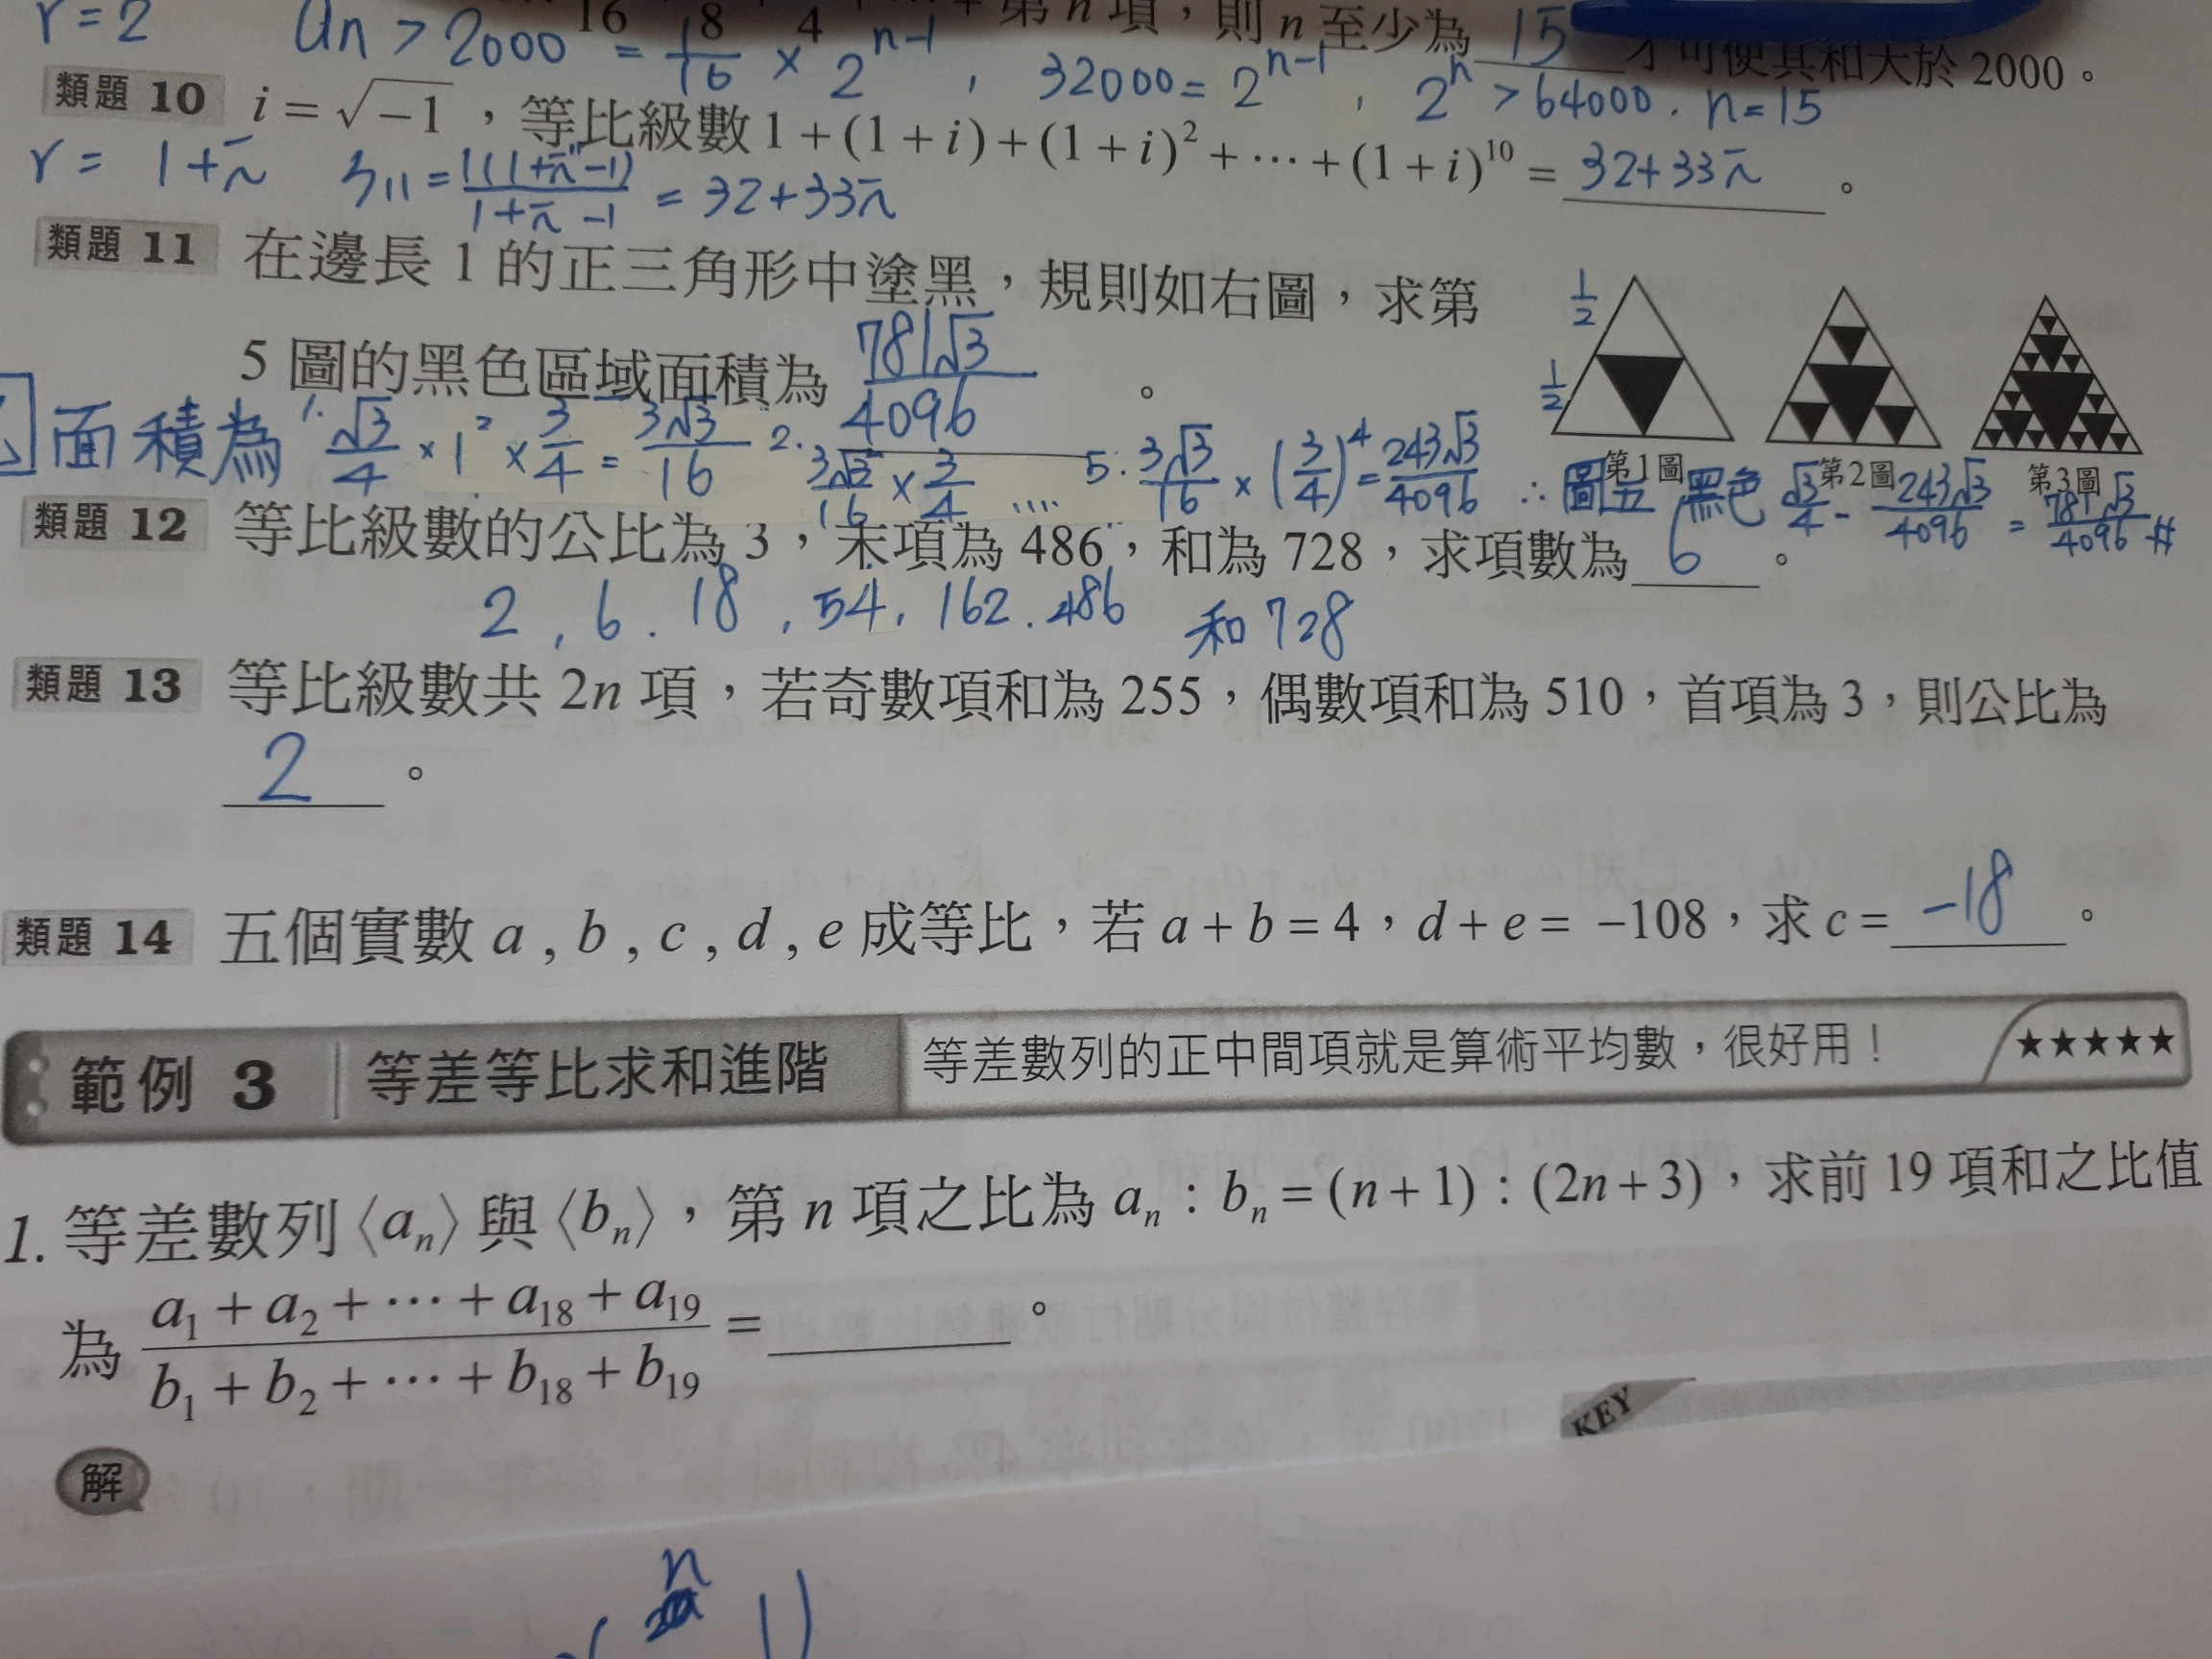 r=2 an > 2000 = 1/16 × 2^(n-1) , 32000 = 2^(n-1) , 2^n > 64000 . n=15
16 8 4 + 第 n 項，則 n 至少為 15 才可使其和大於 2000。
類題 10 i = √-1 ，等比級數 1 + (1 + i) + (1 + i)² + ⋯ + (1 + i)¹⁰ = 32+33i 。
r = 1+i S11 = 1((1+i)¹¹-1) / 1+i-1 = 32+33i
類題 11 在邊長 1 的正三角形中塗黑，規則如右圖，求第
5 圖的黑色區域面積為 781√3/4096 。
1/2
1/2
第1圖 第2圖 第3圖
面積為 1. √3/4 × 1² × 3/4 = 3√3/16 2. 3√3/16 × 3/4 .... 5. 3√3/16 × (3/4)⁴ = 243√3/4096 ∴ 圖五 黑色 √3/4 - 243√3/4096 = 781√3/4096 #
類題 12 等比級數的公比為 3，末項為 486，和為 728，求項數為 6 。
2 , 6 . 18 , 54 , 162 . 486 和 728
類題 13 等比級數共 2n 項，若奇數項和為 255，偶數項和為 510，首項為 3，則公比為
2 。
類題 14 五個實數 a , b , c , d , e 成等比，若 a + b = 4，d + e = -108，求 c = -18 。
範例 3 等差等比求和進階 等差數列的正中間項就是算術平均數，很好用！ ★★★★★
1. 等差數列⟨aₙ⟩與⟨bₙ⟩，第 n 項之比為 aₙ : bₙ = (n + 1) : (2n + 3)，求前 19 項和之比值
為 a₁ + a₂ + ⋯ + a₁₈ + a₁₉ / b₁ + b₂ + ⋯ + b₁₈ + b₁₉ = 。
KEY
解
n
1)